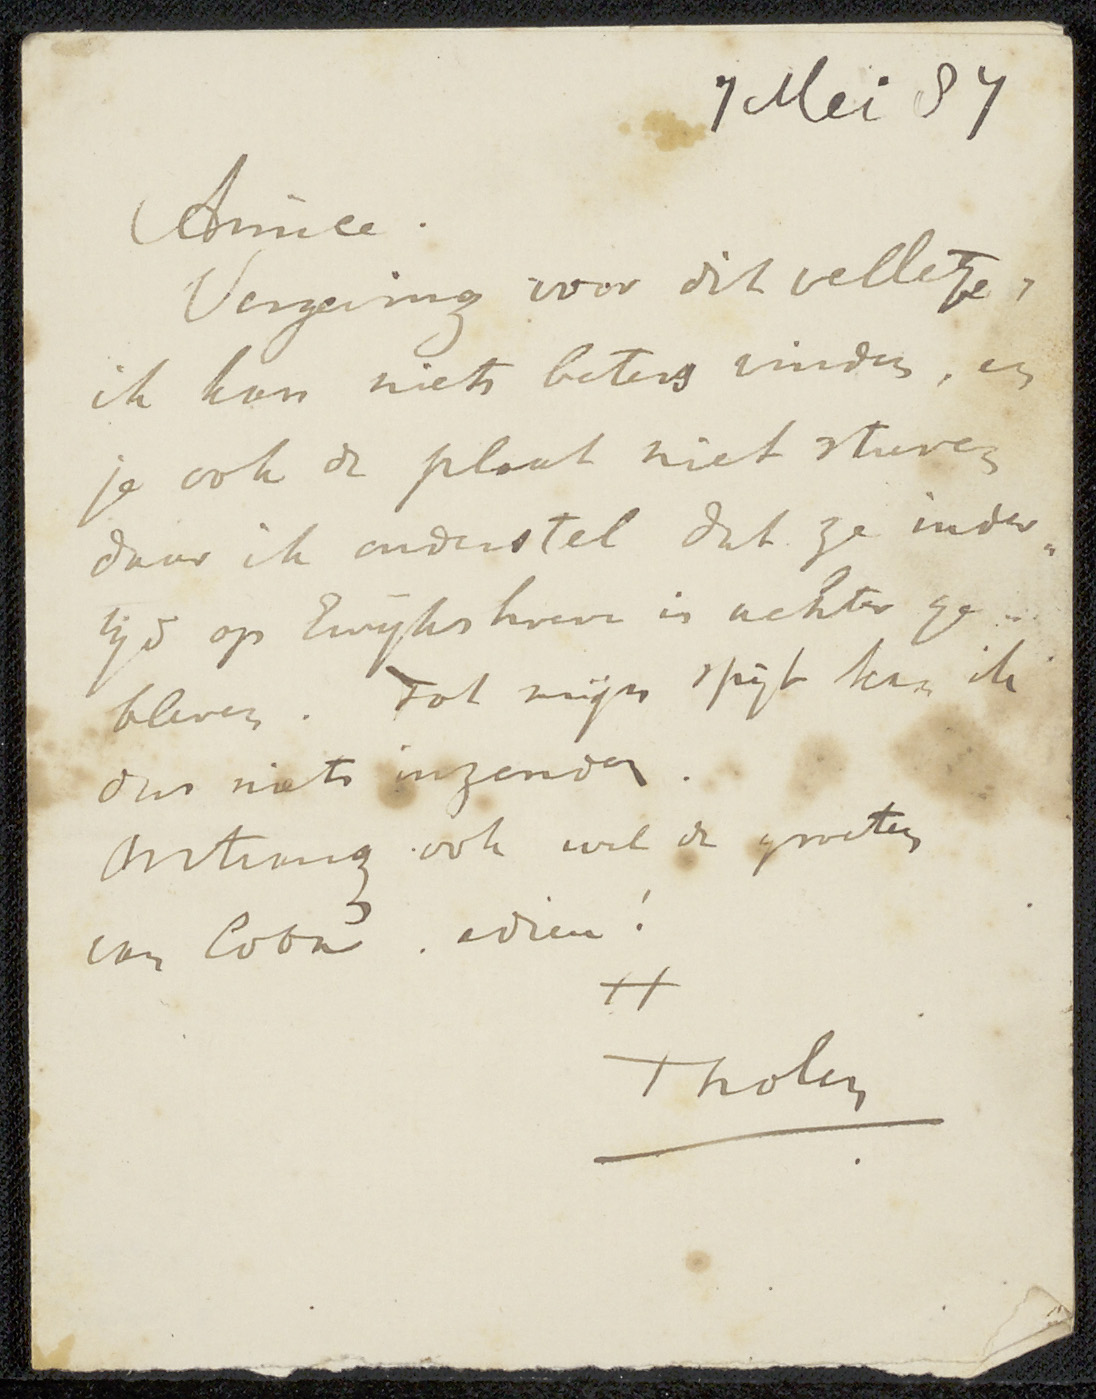 7 Mei 87
Amice.
Vergeving voor dit velletje,
ik kan niets beters vinden, en
je ook de plaat niet sturen
daar ik onderstel dat ze inder„
tijd op Ewijkshoeve is achter ge„
bleven. Tot mijn spijt kan ik
dus niets inzenden.
Ontvang ook wel de groeten
van Coba. adieu!
tt
Tholen